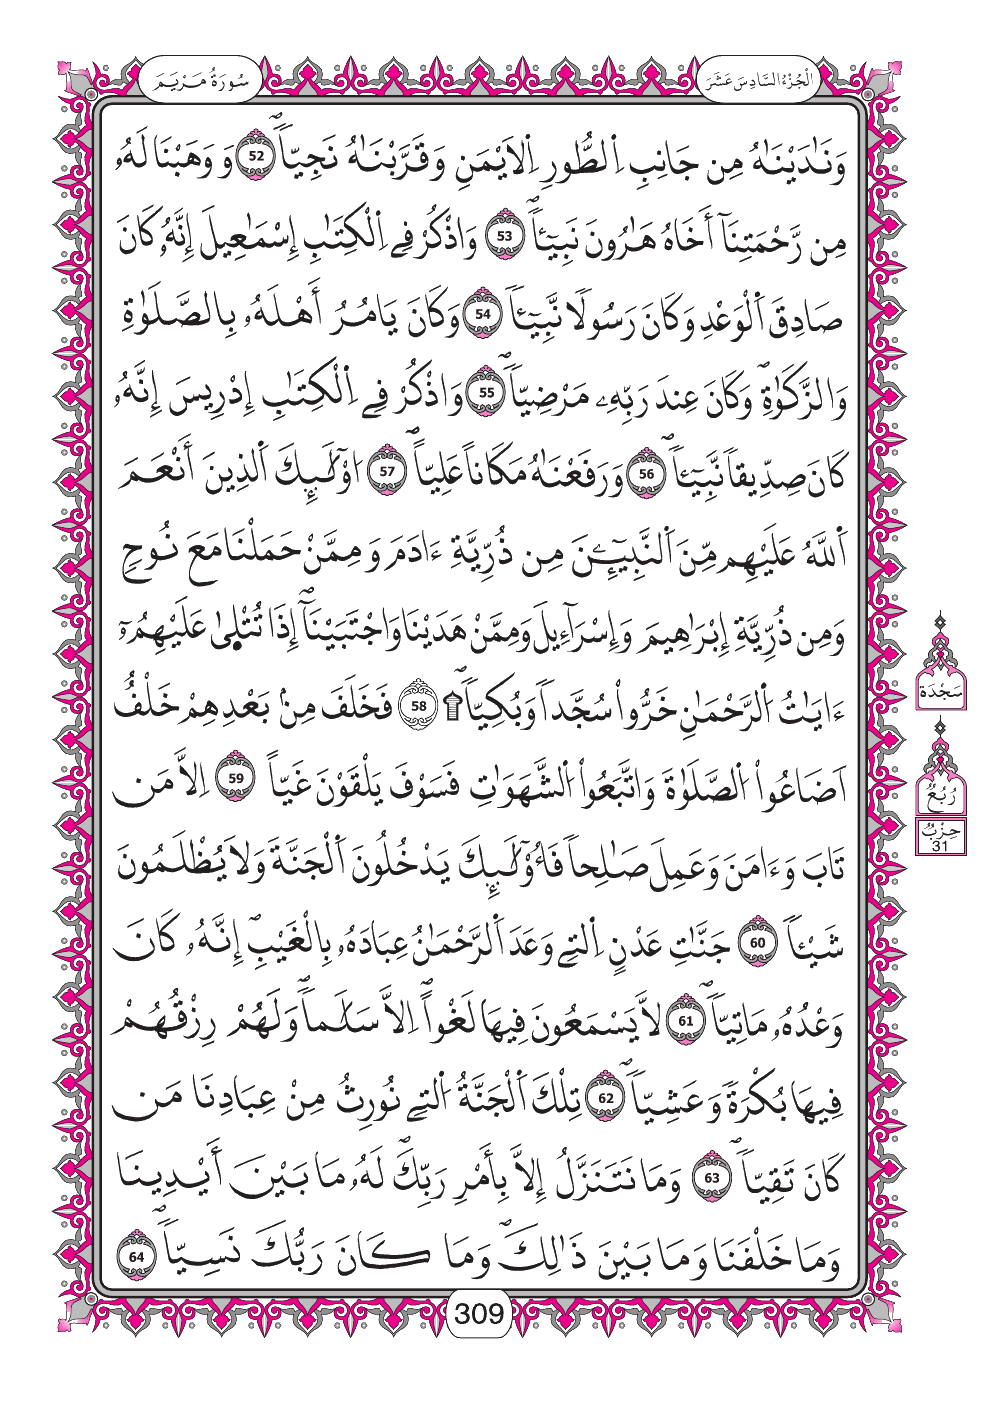 الْجُزْءُ السَّادِسَ عَشَرَ
سُورَةُ مَرْيَمَ
وَنَٰدَيْنَٰهُ مِن جَانِبِ اِ۬لطُّورِ اِ۬لَايْمَنِ وَقَرَّبْنَٰهُ نَجِيّاٗۖ 52 وَوَهَبْنَا لَهُۥ
مِن رَّحْمَتِنَآ أَخَاهُ هَٰرُونَ نَبِيٓـٔاٗۖ 53 وَاذْكُرْ فِے اِ۬لْكِتَٰبِ إِسْمَٰعِيلَ إِنَّهُۥ كَانَ
صَادِقَ اَ۬لْوَعْدِ وَكَانَ رَسُولاٗ نَّبِيٓـٔاٗ 54 وَكَانَ يَامُرُ أَهْلَهُۥ بِالصَّلَوٰةِ
وَالزَّكَوٰةِۖ وَكَانَ عِندَ رَبِّهِۦ مَرْضِيّاٗۖ 55 وَاذْكُرْ فِے اِ۬لْكِتَٰبِ إِدْرِيسَ إِنَّهُۥ
كَانَ صِدِّيقاٗ نَّبِيٓـٔاٗۖ 56 وَرَفَعْنَٰهُ مَكَاناً عَلِيّاًۖ 57 ا۟وْلَٰٓئِكَ اَ۬لذِينَ أَنْعَمَ
اَ۬للَّهُ عَلَيْهِم مِّنَ اَ۬لنَّبِيٓـِٕۧنَ مِن ذُرِّيَّةِ ءَادَمَ وَمِمَّنْ حَمَلْنَا مَعَ نُوحٖ
وَمِن ذُرِّيَّةِ إِبْرَٰهِيمَ وَإِسْرَآءِيلَ وَمِمَّنْ هَدَيْنَا وَاجْتَبَيْنَآۖ إِذَا تُتْل۪يٰ عَلَيْهِمُۥٓ
ءَايَٰتُ اُ۬لرَّحْمَٰنِ خَرُّواْ سُجَّداٗ وَبُكِيّاٗۖ ۩ 58 فَخَلَفَ مِنۢ بَعْدِهِمْ خَلْفٌ
اَضَاعُواْ اُ۬لصَّلَوٰةَ وَاتَّبَعُواْ اُ۬لشَّهَوَٰتِ فَسَوْفَ يَلْقَوْنَ غَيّاً 59 اِلَّا مَن
تَابَ وَءَامَنَ وَعَمِلَ صَٰلِحاٗ فَأُوْلَٰٓئِكَ يَدْخُلُونَ اَ۬لْجَنَّةَ وَلَا يُظْلَمُونَ
شَيْـٔاٗ 60 جَنَّٰتِ عَدْنٍ اِ۬لتِے وَعَدَ اَ۬لرَّحْمَٰنُ عِبَادَهُۥ بِالْغَيْبِۖ إِنَّهُۥ كَانَ
وَعْدُهُۥ مَاتِيّاٗۖ 61 لَّا يَسْمَعُونَ فِيهَا لَغْواًۖ اِلَّا سَلَٰماٗۖ وَلَهُمْ رِزْقُهُمْ
فِيهَا بُكْرَةٗ وَعَشِيّاٗۖ 62 تِلْكَ اَ۬لْجَنَّةُ اُ۬لتِے نُورِثُ مِنْ عِبَادِنَا مَن
كَانَ تَقِيّاٗۖ 63 وَمَا نَتَنَزَّلُ إِلَّا بِأَمْرِ رَبِّكَۖ لَهُۥ مَا بَيْنَ أَيْدِينَا
وَمَا خَلْفَنَا وَمَا بَيْنَ ذَٰلِكَۖ وَمَا كَانَ رَبُّكَ نَسِيّاٗۖ 64
سَجْدَة
رُبُعُ
حِزْبٌ
31
309